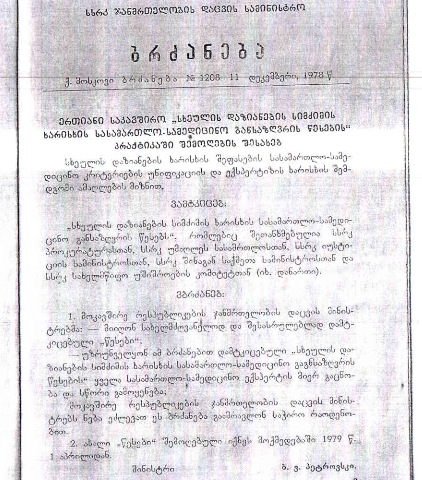 სსრკ ჯანმრთელობის დაცვის სამინისტრო
ბრძანება
ქ. მოსკოვი ბრძანება № 1208 11 დეკემბერი, 1978 წ
ერთიანი საკავშირო „სხეულის დაზიანების სიმძიმის
ხარისხის სასამართლო-სამედიცინო განსაზღვრის წესების“
პრაქტიკაში შემოღების შესახებ
სხეულის დაზიანების ხარისხის შეფასების სასამართლო-სამე-
დიცინო კრიტერიების უნიფიკაციის და ექსპერტიზის ხარისხის შემ-
დგომი ამაღლების მიზნით,
ვამტკიცებ:
„სხეულის დაზიანების სიმძიმის ხარისხის სასამართლო-სამედი-
ცინო განსაზღვრის წესებს“, რომლებიც შეთანხმებულია სსრკ
პროკურატურასთან, სსრკ უმაღლეს სასამართლოსთან, სსრკ იუსტი-
ციის სამინისტროსთან, სსრკ შინაგან საქმეთა სამინისტროსთან და
სსრკ სახელმწიფო უშიშროების კომიტეტთან (იხ. დანართი).
ვბრძანებ:
1. მოკავშირე რესპუბლიკების ჯანმრთელობის დაცვის მინის-
ტრებმა: — მიიღონ სახელმძღვანელოდ და შესასრულებლად დამტ-
კიცებული „წესები“.
— უზრუნველყონ ამ ბრძანებით დამტკიცებული „სხეულის და-
ზიანების სიმძიმის ხარისხის სასამართლო-სამედიცინო გაგნსაზღვრის
წესების“ ყველა სასამართლო-სამედიცინო ექსპერტის მიერ გაცნო-
ბა და სწორი გამოყენება;
მოკავშირე რესპუბლიკების ჯანმრთელობის დაცვის მინის-
ტრებს ნება ეძლევათ ეს ბრძანება გაამრავლონ საჭირო რაოდენო-
ბით.
2. ახალი „წესები“ შემოღებული იქნეს მოქმედებაში 1979 წ
1 აპრილიდან.
მინისტრი ბ. ვ. პეტროვსკი,